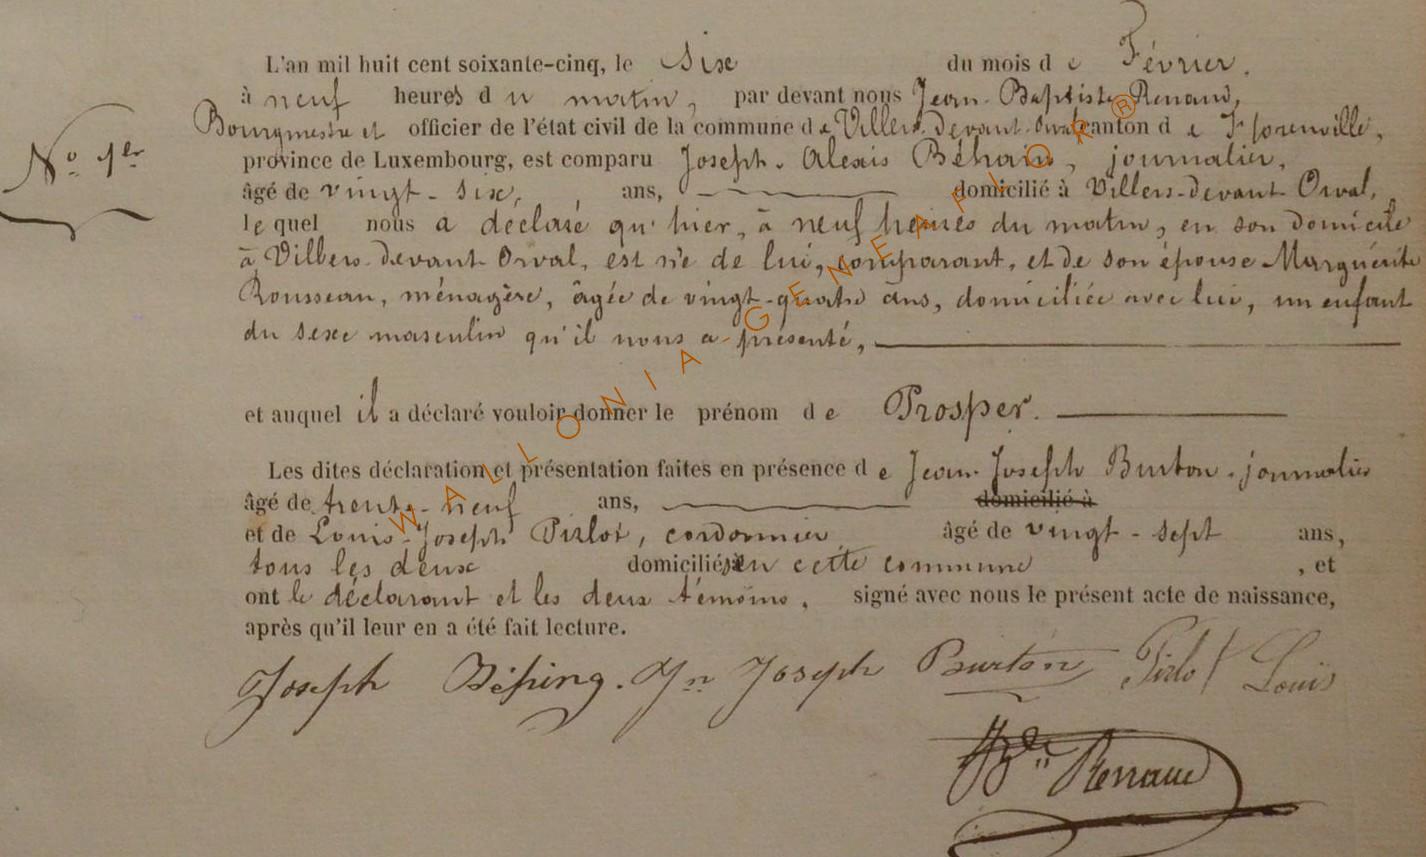 L'an mil huit cent soixante-cinq, le six du mois de Février,
à neuf heures du matin, par devant nous Jean-Baptiste Renaud,
Bourgmestre et officier de l'état civil de la commune de Villers-devant-Orval canton de Florenville,
N° 1er
province de Luxembourg, est comparu Joseph-Alexis journalier,
âgé de vingt-six, ans, domicilié à Villers-devant-Orval,
lequel nous a déclaré qu'hier, à neuf heures du matin, en son domicile
à Villers-devant-Orval, est né de lui, comparant, et de son épouse Marguérite
Rousseau, ménagère, âgée de vingt-quatre ans, domiciliée avec lui, un enfant
du sexe masculin qu'il nous a présenté,
et auquel il a déclaré vouloir donner le prénom de Prosper.
Les dites déclaration et présentation faites en présence de Jean-Joseph Burton, journalier
âgé de trente-neuf ans, domicilié à
et de Louis-Joseph Pirlot, cordonnier âgé de vingt-sept ans,
tous les deux domiciliés en cette commune, et
ont le déclarant et les deux témoins, signé avec nous le présent acte de naissance,
après qu'il leur en a été fait lecture.
Joseph Jn Joseph Burton Pirlot Louis
Renaud
WALLONIA-GENEAPHOR®